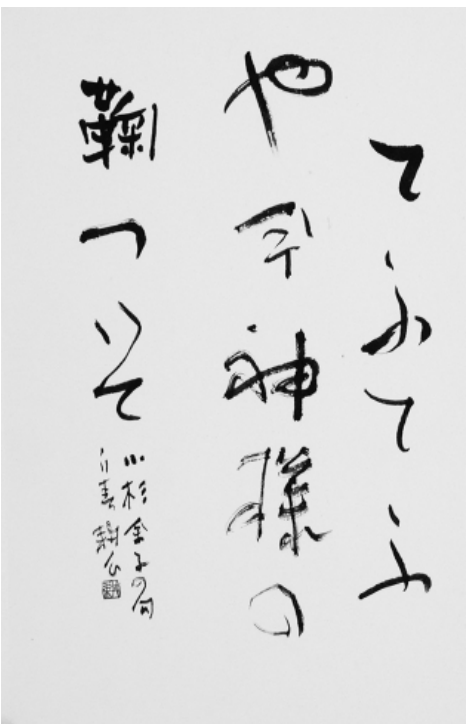 てふてふ
や神様の
鞠ついて
小杉余子の句